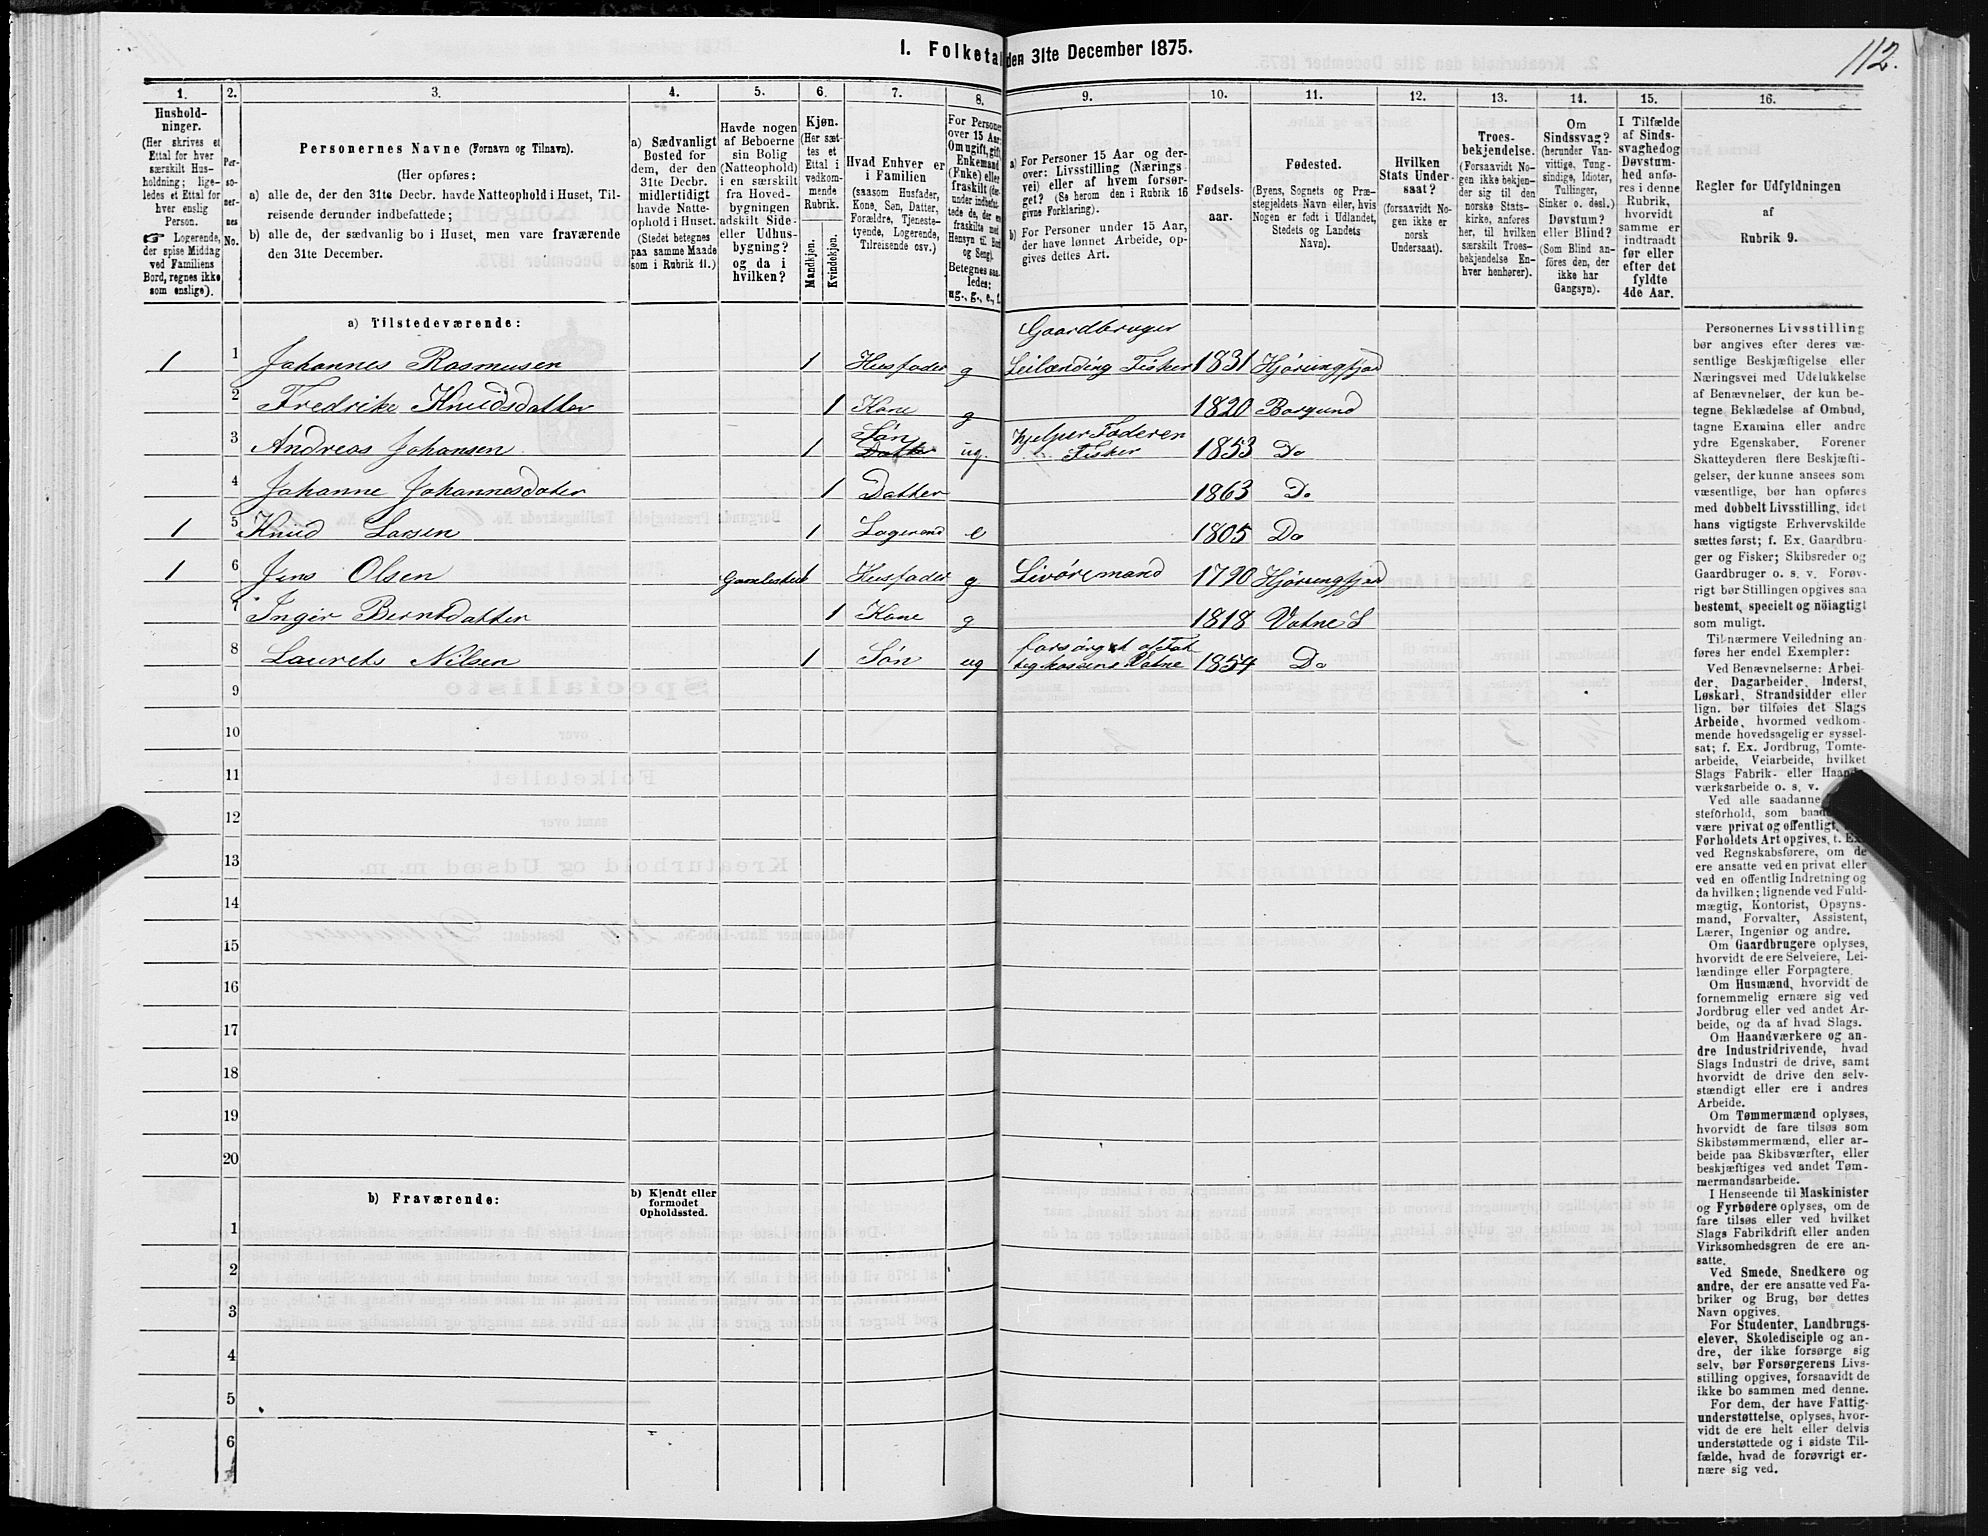 I. Folketal den 31te December 1875.
112.
1. 2. 3. 4. 5. 6. 7. 8. 9. 10. 11. 12. 13. 14. 15. 16.
Hushold-
ninger.
(Her skrives et
Ettal for hver
særskilt Hus-
holdning; lige-
ledes et Ettal for
hver enslig
Person.
☞ Logerende,
der spise Middag
ved Familiens
Bord, regnes ikke
som enslige).
Per-
so-
ner-
nes
No.
Personernes Navne (Fornavn og Tilnavn).
(Her opføres:
a) alle de, der den 31te Decbr. havde Natteophold i Huset, Til-
reisende derunder indbefattede;
b) alle de, der sædvanlig bo i Huset, men vare fraværende
den 31te December.
a) Sædvanligt
Bosted for
dem, der den
31te Decbr.
midlertidigt
havde Natte-
ophold i Huset.
(Stedet betegnes
paa samme Maade
som i Rubrik 11.)
Havde nogen
af Beboerne
sin Bolig
(Natteophold)
i en særskilt
fra Hoved-
bygningen
adskilt Side-
eller Udhus-
bygning?
og da i
hvilken?
Kjøn.
(Her sæt-
tes et
Ettal i
vedkom-
mende
Rubrik.
Mandkjøn.
Kvindekjøn.
Hvad Enhver er
i Familien
(saasom Husfader,
Kone, Søn, Datter,
Forældre, Tjeneste-
tyende, Logerende,
Tilreisende osv.)
For Personer
over 15 Aar:
Om ugift, gift,
Enkemand
(Enke) eller
fraskilt (der-
under indbefat-
tede de, der ere
fraskilte med
Hensyn til Bord
og Seng).
Betegnes saa-
ledes:
ug., g., e., f.
a) For Personer 15 Aar og der-
over: Livsstilling (Nærings-
vei) eller af hvem forsør-
get? (Se herom den i Rubrik 16
givne Forklaring).
b) For Personer under 15 Aar,
der have lønnet Arbeide, op-
gives dettes Art.
Fødsels-
aar.
Fødested.
(Byens, Sognets og Præ-
stegjeldets Navn eller, hvis
Nogen er født i Udlandet,
Stedets og Landets
Navn).
Hvilken
Stats Under-
saat?
(forsaavidt No-
gen ikke er
norsk
Undersaat).
Troes-
bekjendelse.
(Forsaavidt No-
gen ikke bekjen-
der sig til den
norske Stats-
kirke, anføres
her, til hvilken
særskilt Troes-
bekjendelse En-
hver henhører).
Om
Sindssvag?
(herunder Van-
vittige, Tung-
sindige, Idioter,
Tullinger,
Sinker o. desl.)
Døvstum?
eller Blind?
(Som Blind an-
føres den, der
ikke har
Gangsyn).
I Tilfælde
af Sinds-
svaghed og
Døvstum-
hed anfø-
res i denne
Rubrik,
hvorvidt
samme er
indtraadt
før eller
efter det
fyldte
4de Aar.
Regler for Udfyldningen
af
Rubrik 9.
a) Tilstedeværende:
Gaardbruger
1 1 Johannes Rasmusen 1 Husfader g Leilænding Fisker 1831 Hjørungfjord
2 Fredrike Knudsdatter 1 Kone g 1820 Borgund
Søn hjelper Faderen
3 Andreas Johansen 1 Datter ug. Fisker 1853 Do
4 Johanne Johannesdater 1 Datter 1863 Do
1 5 Knud Larsen 1 Logerend e 1805 Do
1 6 Jens Olsen 1 Husfader g Livøremand 1790 Hjørungfjord
7 Inger Berntdatter 1 Kone g 1818 Vatne S
8 Laurets Nilsen 1 Søn ug forsørget af Fat
tigkassens Vatne 1854 Do
9
10
11
12
13
14
15
16
17
18
19
20
b) Fraværende:
b) Kjendt eller
formodet
Opholdssted.
1
2
3
4
5
6
Personernes Livsstilling
bør angives efter deres væ-
sentlige Beskjæftigelse eller
Næringsvei med Udelukkelse
af Benævnelser, der kun be-
tegne Beklædelse af Ombud,
tagne Examina eller andre
ydre Egenskaber. Forener
Skatteyderen flere Beskjæfti-
gelser, der kunne ansees som
væsentlige, bør han opføres
med dobbelt Livsstilling, idet
hans vigtigste Erhvervskilde
sættes først; f. Ex. Gaardbru-
ger og Fisker; Skibsreder og
Gaardbruger o. s. v. Forøv-
rigt bør Stillingen opgives saa
bestemt, specielt og nöiagtigt
som muligt.
Til nærmere Veiledning an-
føres her endel Exempler:
Ved Benævnelserne: Arbei-
der, Dagarbeider, Inderst,
Løskarl, Strandsidder eller
lign. bør tilføies det Slags
Arbeide, hvormed vedkom-
mende hovedsagelig er syssel-
sat; f. Ex. Jordbrug, Tomte-
arbeide, Veiarbeide, hvilket
Slags Fabrik- eller Haand-
værksarbeide o. s. v.
Ved alle saadanne
steforhold, som baade
være privat og offentligt,
Forholdets Art opgives, t. Ex.
ved Regnskabsførere, om de
ere ansatte ved en privat eller
ved en offentlig Indretning og
da hvilken; lignende ved Fuld-
mægtig, Kontorist, Opsyns-
mand, Forvalter, Assistent,
Lærer, Ingeniør og andre.
Om Gaardbrugere oplyses,
hvorvidt de ere Selveiere, Lei-
lændinge eller Forpagtere.
Om Husmænd, hvorvidt de
fornemmelig ernære sig ved
Jordbrug eller ved andet Ar-
beide, og da af hvad Slags.
Om Haandværkere og an-
dre Industridrivende, hvad
Slags Industri de drive, samt
hvorvidt de drive den selv-
stændigt eller ere i andres
Arbeide.
Om Tømmermænd oplyses,
hvorvidt de fare tilsøs som
Skibstømmermænd, eller ar-
beide paa Skibsværfter, eller
beskjæftiges ved andet Tøm-
mermandsarbeide.
I Henseende til Maskinister
og Fyrbødere oplyses, om de
fare tilsøs eller ved hvilket
Slags Fabrikdrift eller anden
Virksomhedsgren de ere an-
satte.
Ved Smede, Snedkere og
andre, der ere ansatte ved Fa-
briker og Brug, bør dettes
Navn opgives.
For Studenter, Landbrugs-
elever, Skoledisciple og an-
dre, der ikke forsørge sig
selv, bør Forsørgerens Livs-
stilling opgives, forsaavidt de
ikke bo sammen med denne.
For dem, der have Fattig-
understøttelse, oplyses, hvor-
vidt de ere helt eller delvis
understøttede og i sidste Til-
fælde, hvad de forøvrigt er-
nære sig ved.